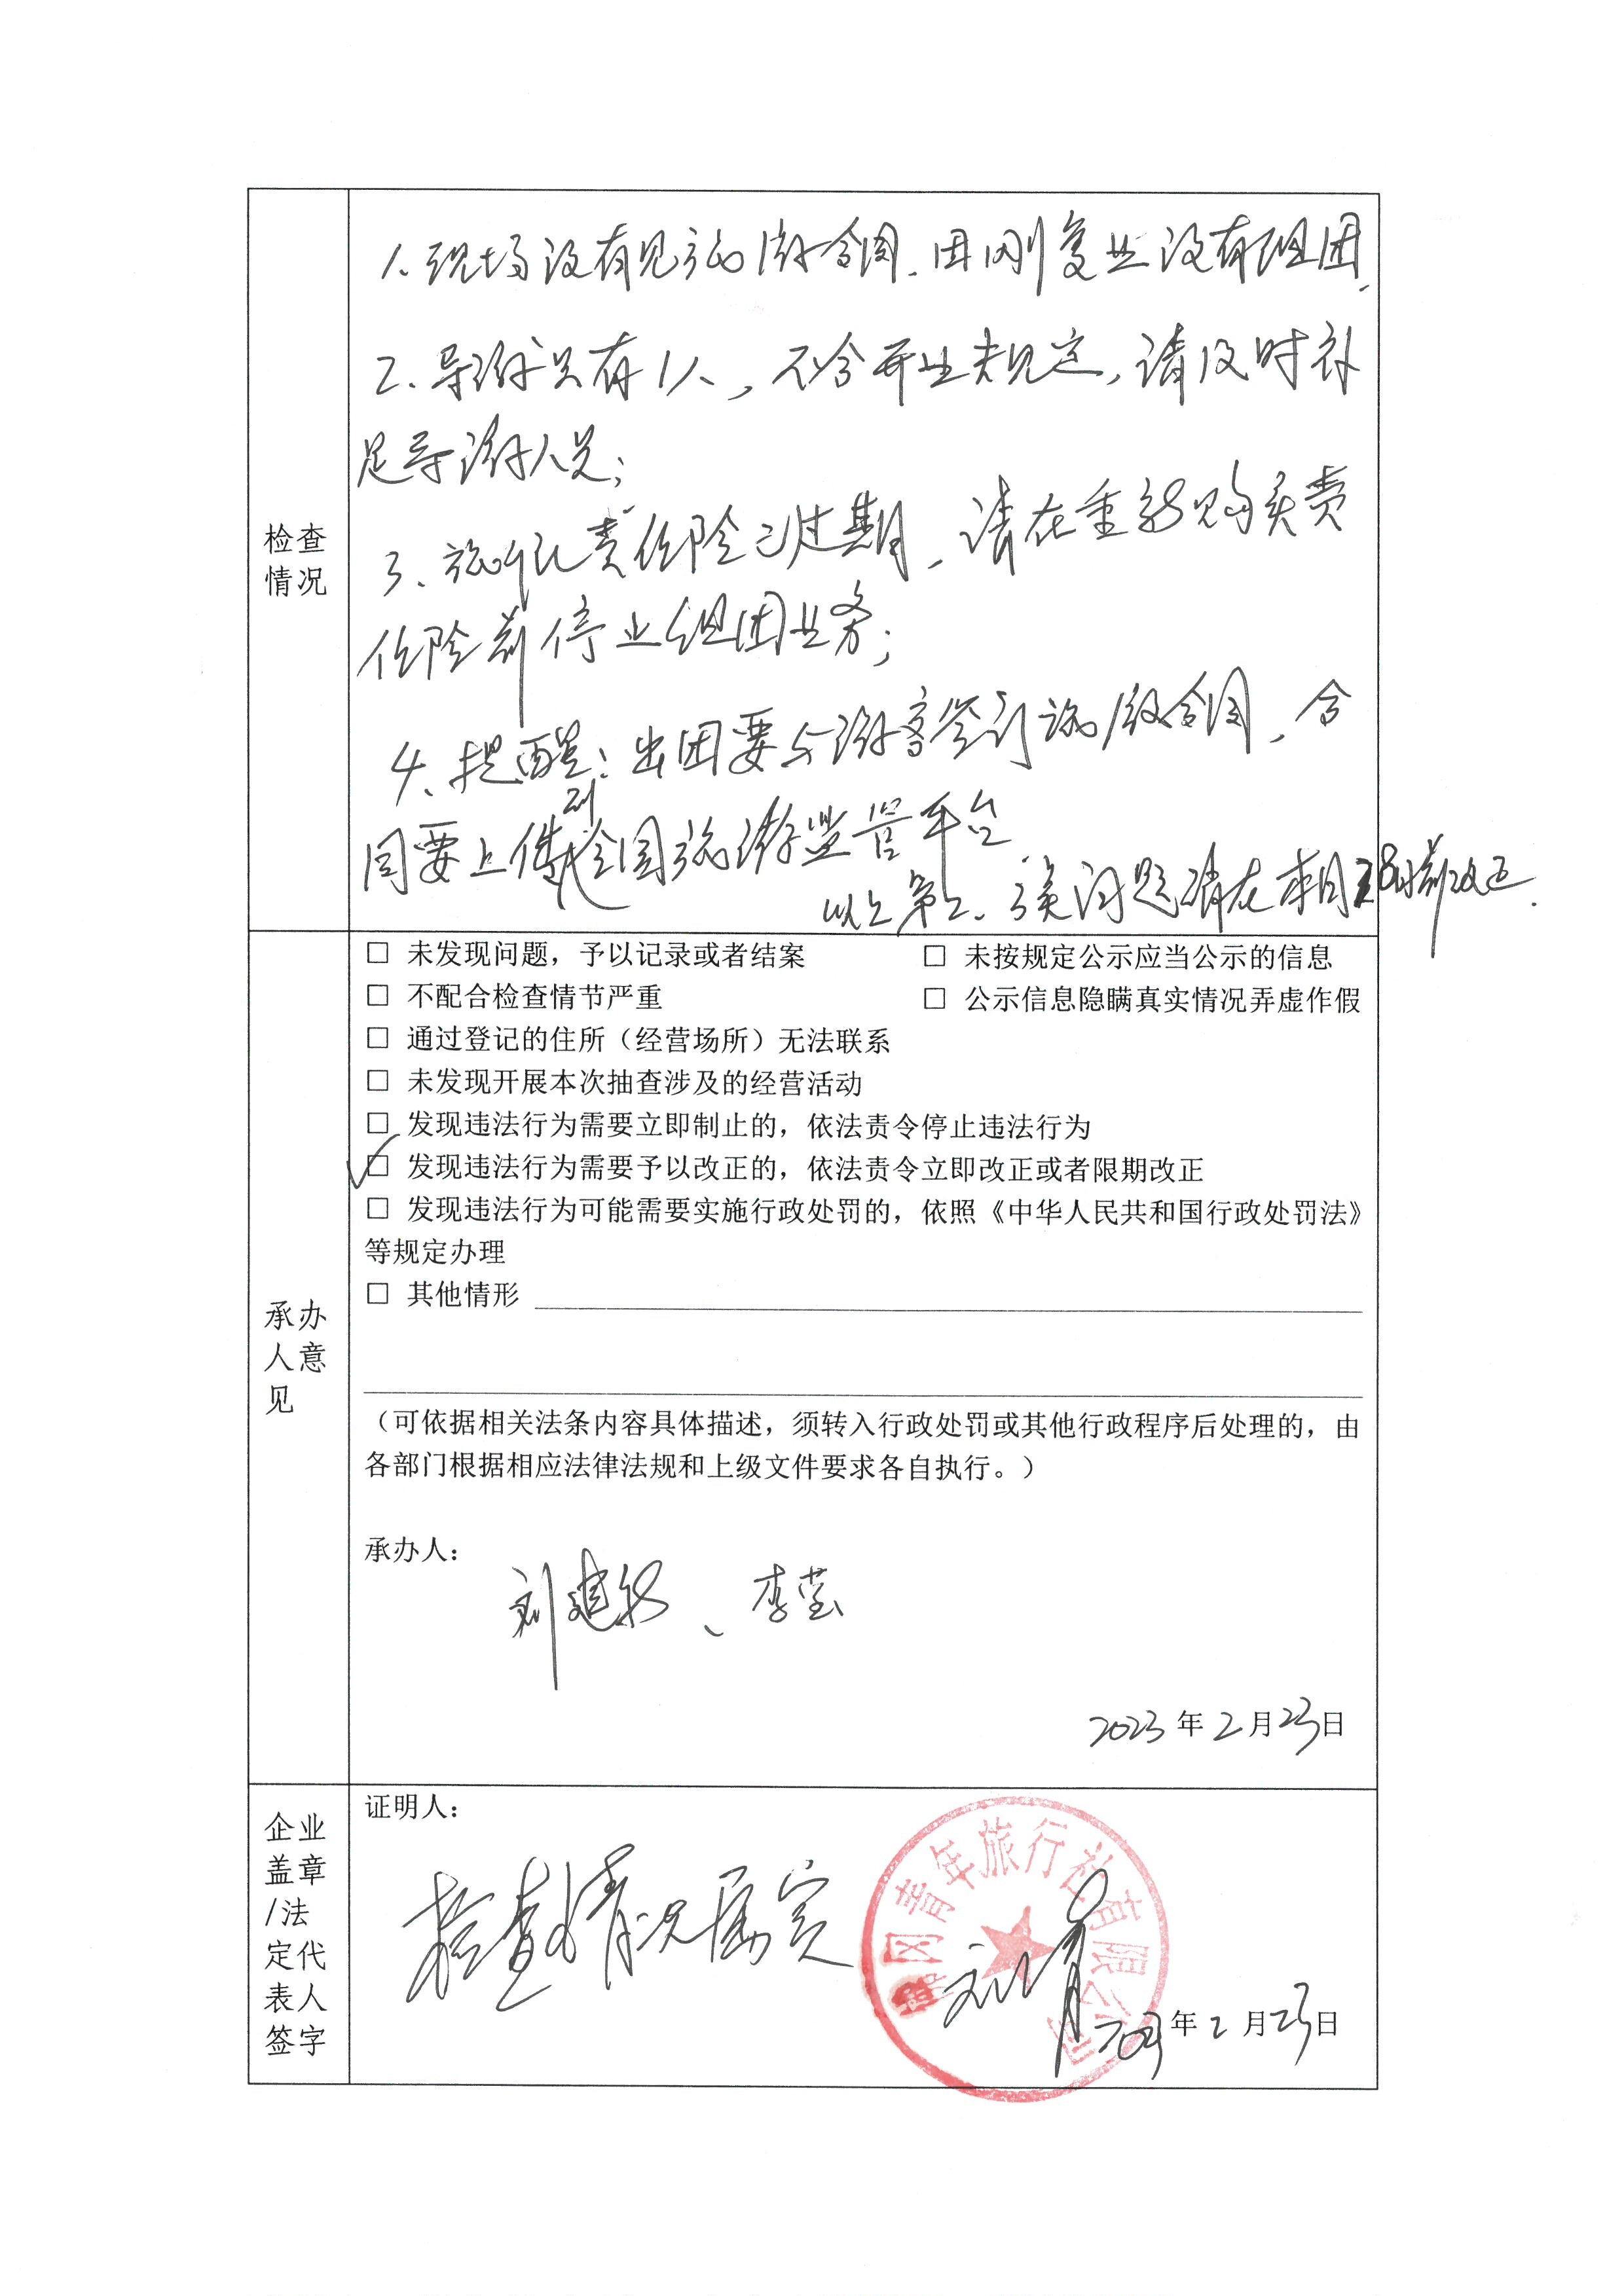 检查
情况
1、现场没有见旅游合同、因刚复业没有组团、
2、导游只有1人，不合开业规定，请及时补
足导游人员；
3、旅行社责任险已过期，请在重新购买责
任险前停止组团业务；
4、提醒：出团要与游客签订旅游合同，合
同要上传到全国旅游监管平台
以上第2、3类问题请在本月28日前改正.
承办
人意
见
□ 未发现问题，予以记录或者结案 □ 未按规定公示应当公示的信息
□ 不配合检查情节严重 □ 公示信息隐瞒真实情况弄虚作假
□ 通过登记的住所（经营场所）无法联系
□ 未发现开展本次抽查涉及的经营活动
□ 发现违法行为需要立即制止的，依法责令停止违法行为
☑ 发现违法行为需要予以改正的，依法责令立即改正或者限期改正
□ 发现违法行为可能需要实施行政处罚的，依照《中华人民共和国行政处罚法》
等规定办理
□ 其他情形
（可依据相关法条内容具体描述，须转入行政处罚或其他行政程序后处理的，由
各部门根据相应法律法规和上级文件要求各自执行。）
承办人：
刘建 、李莹
2023年2月23日
企业
盖章
/法
定代
表人
签字
证明人：
检查情况属实
冈青年旅行社有限公司
2023年2月23日